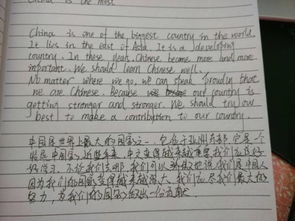 China is the most
China is one of the biggest country in the world
It lies in the east of Asia. It is a developing
country. In these years Chinese became more and more
important. We should learn Chinese well.
No matter where we go, we can speak proudly that
we are Chinese. Because our country is
getting stronger and stronger. We should try our
best to make a contribution to our country.
中国是世界上最大的国家之一,它位于亚洲东部,它是一个
发展中国家。近些年来,中文变得越来越重要,我们应该好
好学习。不论我们去哪,我们可以骄傲地说我们是中国人
因为我们的国家变得越来越强大。我们应尽我们最大的
努力,为我们的国家做出一份贡献